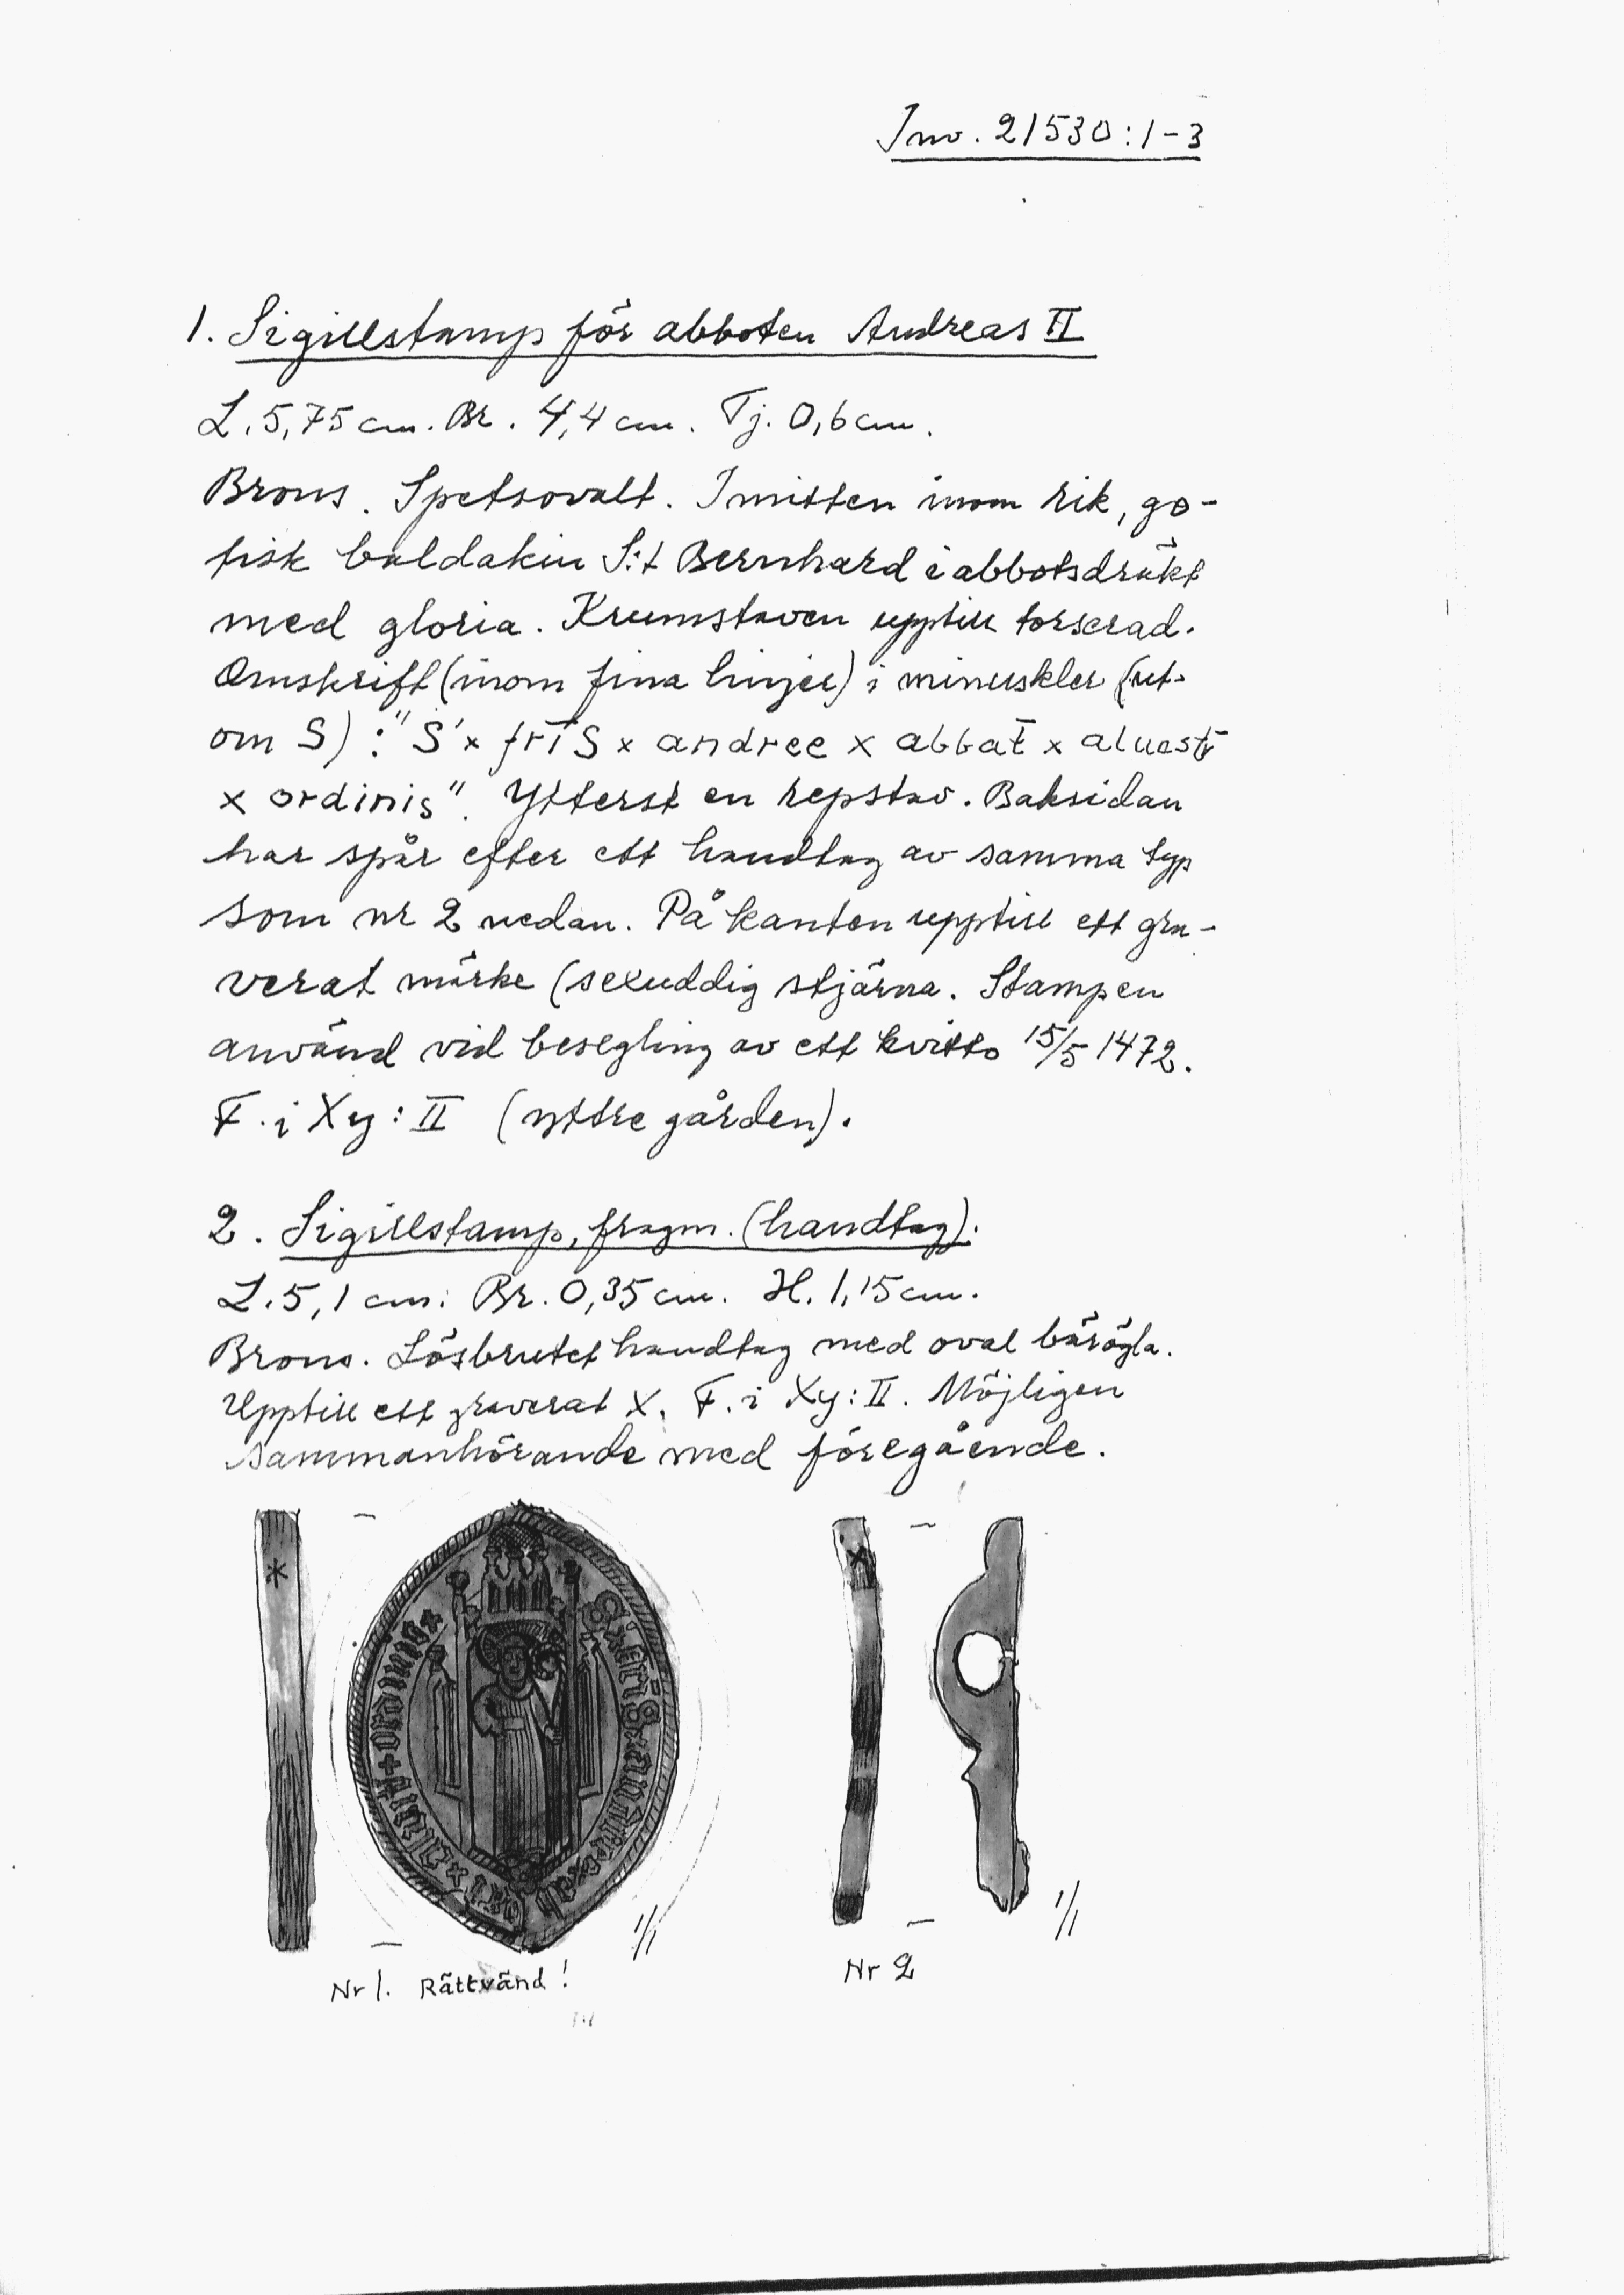 Inv. 21530:1-3
1. Sigillstamp för abboten Andreas II
L. 5,75 cm. Br. 4,4 cm. Tj. 0,6 cm.
Brons. Spetsovalt. I mitten inom rik, go-
tisk baldakin S:t Bernhard i abbotsdräkt
med gloria. Krumstaven upptill torserad.
Omskrift (inom fina linjer) i minuskler (ut-
om S) : "S' x fr̄is x andree x abbat̄ x aluastr̄
x ordinis". Ytterst en repstav. Baksidan
har spår efter ett handtag av samma typ
som nr 2 nedan. På kanten upptill ett gra-
verat märke (sexuddig stjärna. Stampen
använd vid besegling av ett kvitto 15/5 1472.
F. i Xy: II (yttre gården).
2. Sigillstamp, fragm. (handtag).
L. 5,1 cm. Br. 0,35 cm. H. 1,15 cm.
Brons. Lösbrutet handtag med oval bärögla.
Upptill ett graverat X. F. i Xy: II. Möjligen
sammanhörande med föregående.
1/1
1/1
Nr 1. Rättvänd!
Nr 2